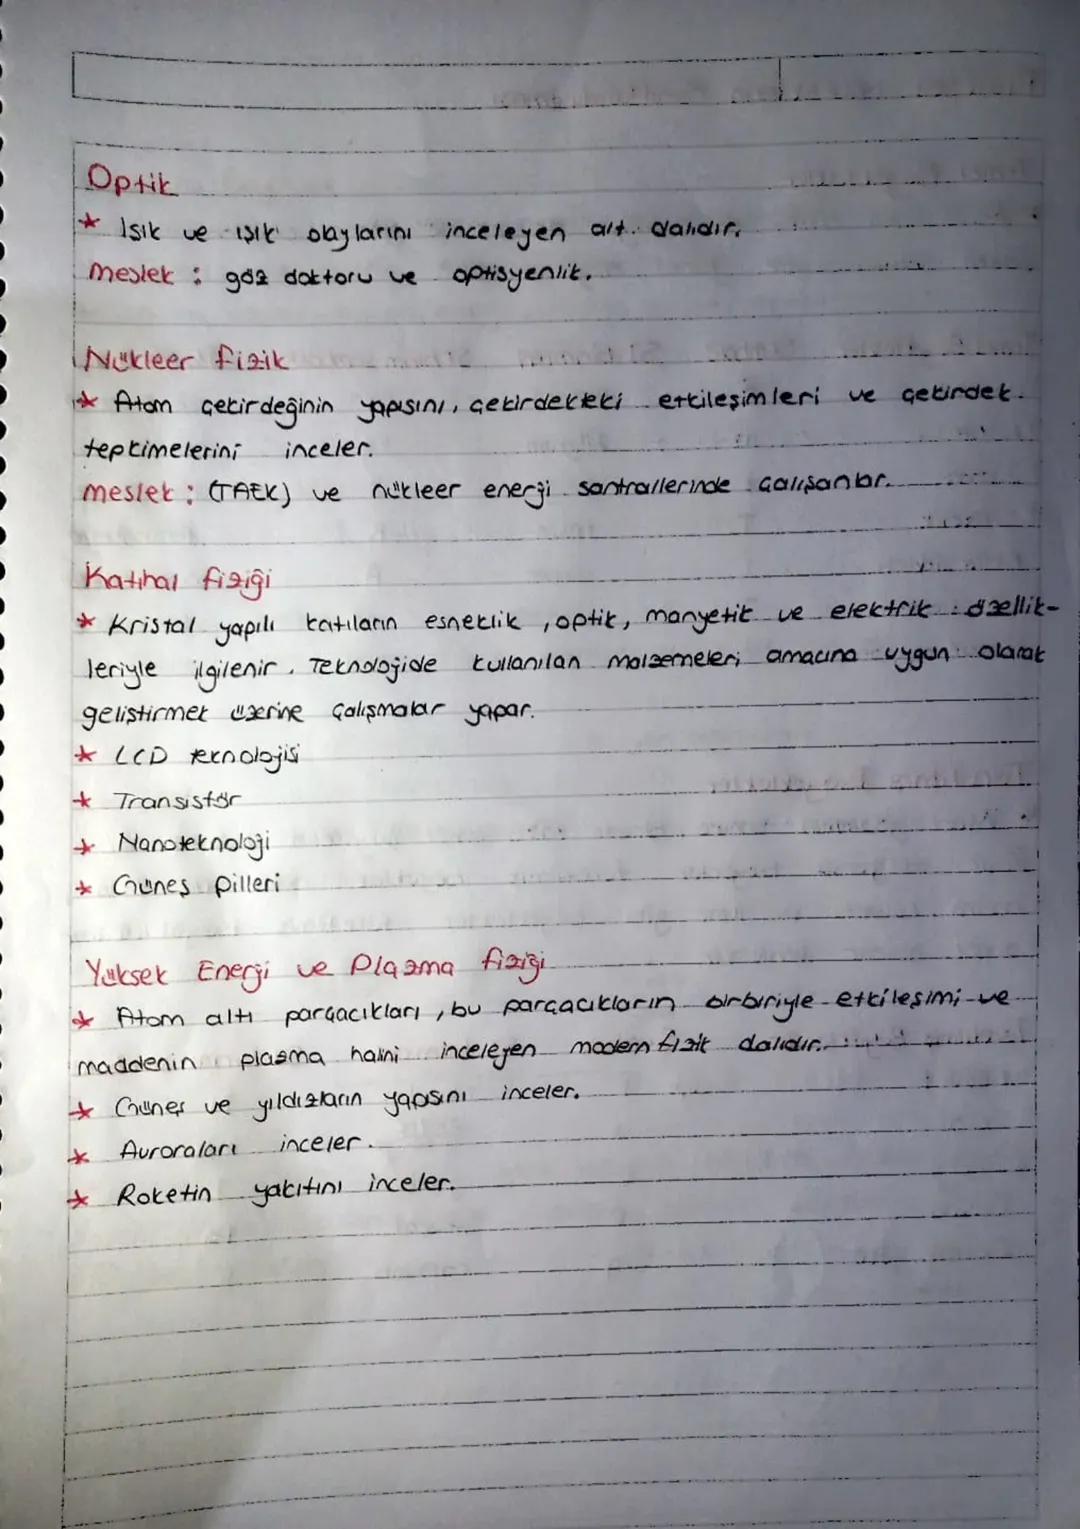 Optik
* Işık ve ışık olaylarını inceleyen alt dalıdır.
meslek : göz doktoru ve optisyenlik.
Nükleer fizik
* Atom çekirdeğinin yapısını, çekirdekteki etkileşimleri ve çekirdek
tepkimelerini inceler.
meslek : (TAEK) ve nükleer enerji santrallerinde çalışanlar.
Katıhal fiziği
* Kristal yapılı katıların esneklik, optik, manyetik ve elektrik özellik-
leriyle ilgilenir. Teknolojide kullanılan malzemeleri amacına uygun olarak
geliştirmek üzerine çalışmalar yapar.
* LCD teknolojisi
* Transistör
* Nanoteknoloji
* Güneş pilleri
Yüksek Enerji ve Plazma fiziği
* Atom altı parçacıkları, bu parçacıkların birbiriyle etkileşimi ve
maddenin plazma halini inceleyen modern fizik dalıdır.
* Güneş ve yıldızların yapısını inceler.
* Auroraları inceler.
* Roketin yakıtını inceler.